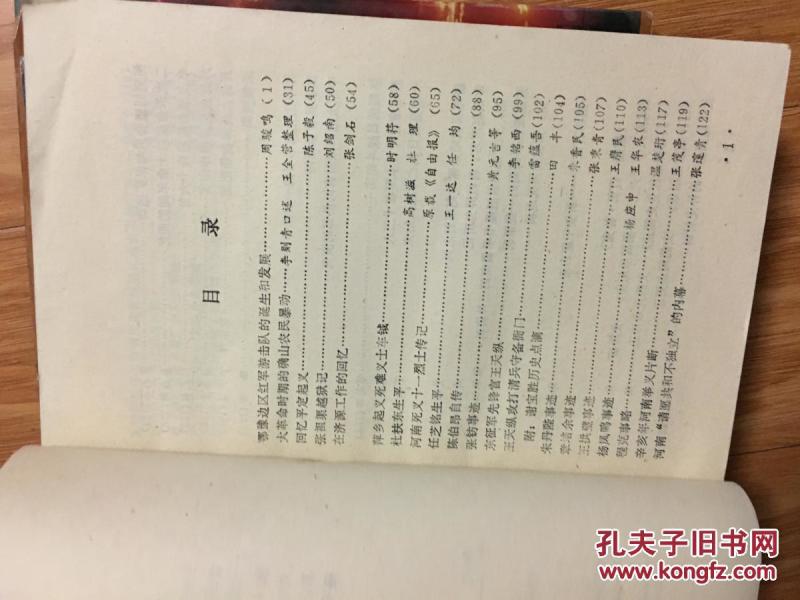 目录
鄂豫边区红军游击队的诞生和发展………………周骏鸣（1）
大革命时期的确山农民暴动……李则青口述 王全营整理（31）
回忆平定起义………………陈子毅（45）
张振渠越狱记………………刘绍南（50）
在济源工作的回忆………………张剑石（54）
萍乡起义死难义士车钺………………时明荇（58）
杜扶东生平………………高树滋 杜理（60）
河南死义十一烈士传记………………原载《自由报》（65）
任芝铭生平………………王一达 任均（72）
陈伯昂自传………………（88）
张钫事迹………………
东征军先锋官王天纵………………黄元吉等（95）
王天纵攻打清兵守备衙门………………李铭西（99）
附：谢宝胜历史点滴………………雷蕴吾（102）
朱丹陛事迹………………田丰（104）
章洁余事迹………………朱香民（105）
王拱璧事迹………………张来青（107）
杨凤鸣事迹………………王席民（110）
程克事略………………杨应中 王华农（113）
辛亥年河南举义片断………………温楚珩（117）
河南“请愿共和不独立”的内幕………………王茂亭（119）
张莲青（122）
·1·
孔夫子旧书网
www.kongfz.com